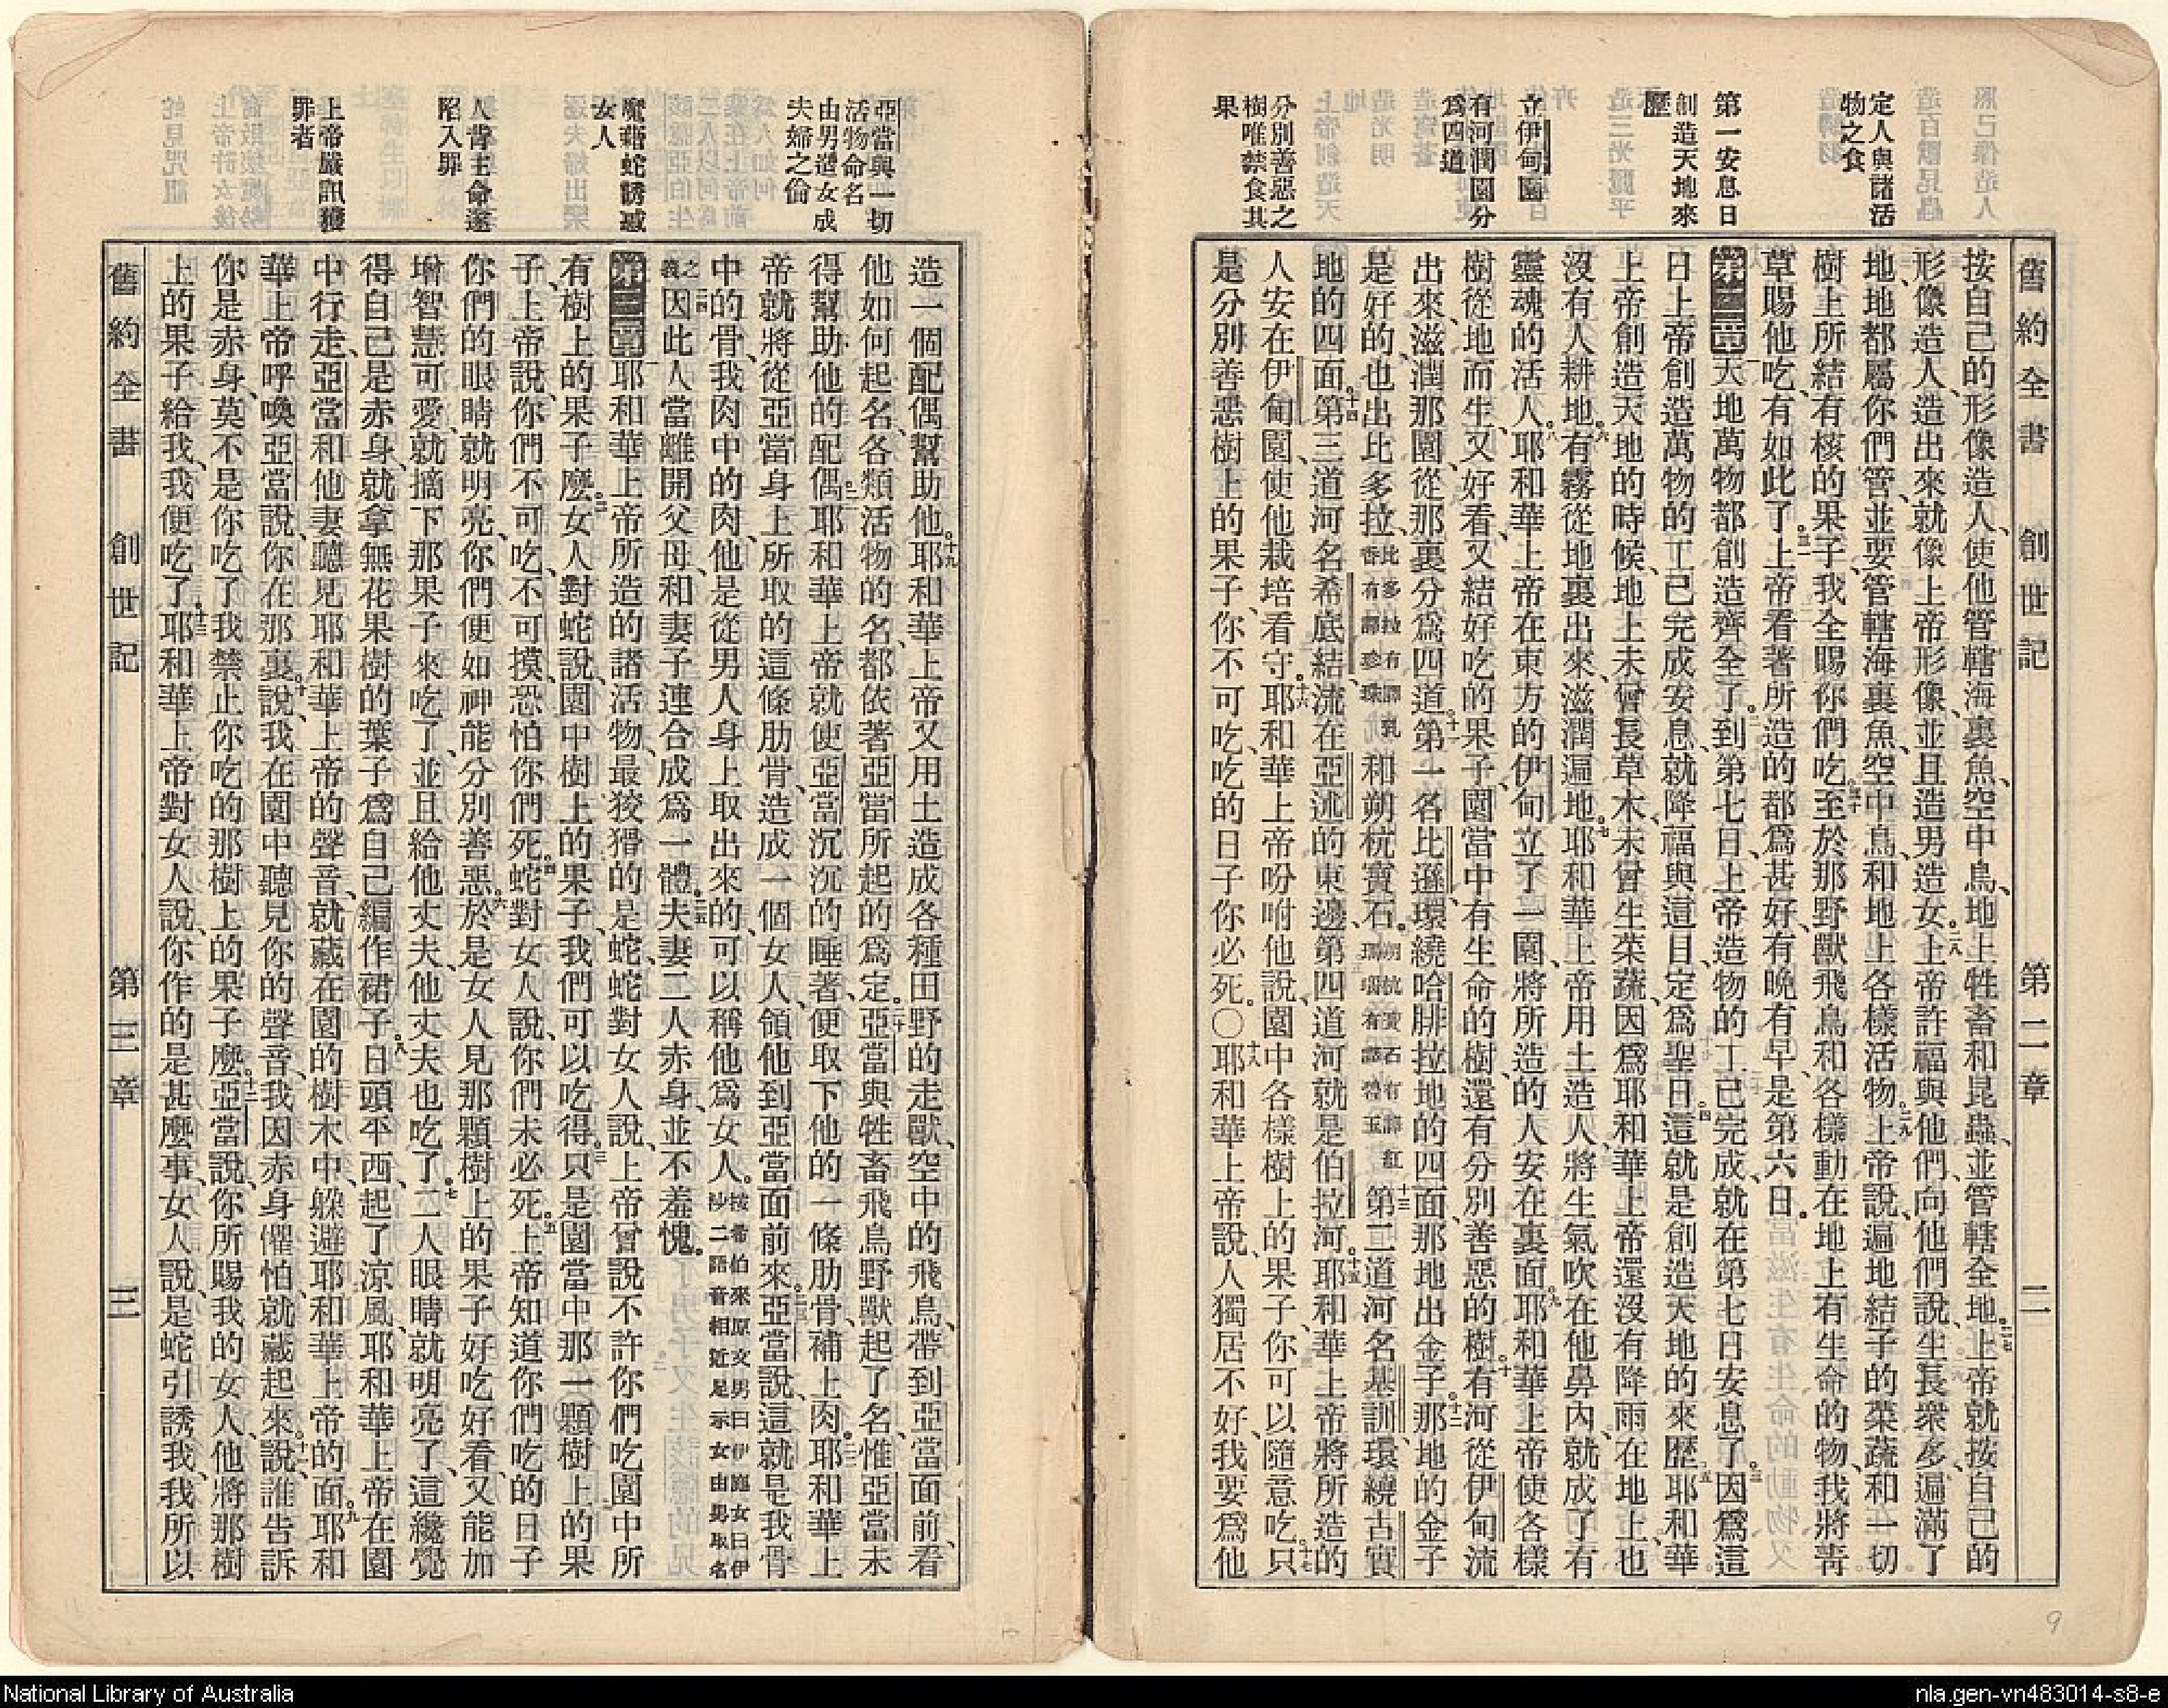 定人與諸活
物之食
第一安息日
創造天地來
歷
立伊甸園
有河潤園分
爲四道
分別善惡之
樹唯禁食其
果
舊約全書 創世記 第二章 二
按自己的形像造人、使他管轄海裏魚、空中鳥、地上牲畜和昆蟲、並管轄全地。二七上帝就按自己的
形像造人、造出來就像上帝形像、並且造男造女。二八上帝許福與他們、向他們說、生長衆多、遍滿了
地、地都屬你們管、並要管轄海裏魚、空中鳥、和地上各樣活物。二九上帝說、遍地結子的菜蔬、和一切
樹上所結有核的果子、我全賜你們吃。三十至於那野獸飛鳥和各樣動在地上有生命的物、我將青
草賜他吃、有如此了。三一上帝看著所造的都爲甚好、有晚有早、是第六日。
第二章一天地萬物都創造齊全了。二到第七日、上帝造物的工已完成、就在第七日安息了。三因爲這
日上帝創造萬物的工已完成安息、就降福與這日、定爲聖日。四這就是創造天地的來歷。五耶和華
上帝創造天地的時候、地上未曾長草木、未曾生菜蔬、因爲耶和華上帝還沒有降雨在地上、也
沒有人耕地。六有霧從地裏出來、滋潤遍地。七耶和華上帝用土造人、將生氣吹在他鼻內、就成了有
靈魂的活人。八耶和華上帝在東方的伊甸立了一園、將所造的人安在裏面。九耶和華上帝使各樣
樹從地而生、又好看、又結好吃的果子、園當中有生命的樹、還有分別善惡的樹。十有河從伊甸流
出來、滋潤那園、從那裏分爲四道。十一第一名比遜、環繞哈腓拉地的四面、那地出金子。十二那地的金子
是好的、也出比多拉比多拉有譯乳香有譯珍珠就和朔杭寶石。朔杭寶石有譯紅瑪瑙有譯碧玉十三第二道河名基訓、環繞古實
地的四面。十四第三道河名希底結、流在亞述的東邊、第四道河就是伯拉河。十五耶和華上帝將所造的
人安在伊甸園、使他栽培看守。十六耶和華上帝吩咐他說、園中各樣樹上的果子、你可以隨意吃。十七只
是分別善惡樹上的果子、你不可吃、吃的日子你必死。〇十八耶和華上帝說、人獨居不好、我要爲他
亞當與一切
活物命名
由男造女成
夫婦之倫
魔藉蛇誘惑
女人
人背主命遂
陷入罪
上帝嚴訊獲
罪者
造一個配偶幫助他。十九耶和華上帝又用土造成各種田野的走獸、空中的飛鳥、帶到亞當面前、看
他如何起名、各類活物的名、都依著亞當所起的爲定。二十亞當與牲畜飛鳥野獸起了名、惟亞當未
得幫助他的配偶。二一耶和華上帝就使亞當沉沉的睡著、便取下他的一條肋骨、補上肉。二二耶和華上
帝就將從亞當身上所取的這條肋骨、造成一個女人、領他到亞當面前來。二三亞當說、這就是我骨
中的骨、我肉中的肉、他是從男人身上取出來的、可以稱他爲女人。按希伯來原文男曰伊施女曰伊沙二語音相近足示女由男取名
之義二四因此人當離開父母、和妻子連合、成爲一體。二五夫妻二人赤身、並不羞愧。
第三章一耶和華上帝所造的諸活物、最狡猾的是蛇、蛇對女人說、上帝曾說不許你們吃園中所
有樹上的果子麼。二女人對蛇說、園中樹上的果子、我們可以吃得。三只是園當中那一顆樹上的果
子、上帝說、你們不可吃、不可摸、恐怕你們死。四蛇對女人說、你們未必死。五上帝知道你們吃的日子、
你們的眼睛就明亮、你們便如神能分別善惡。六於是女人見那顆樹上的果子好吃好看、又能加
增智慧可愛、就摘下那果子來吃了、並且給他丈夫、他丈夫也吃了。七二人眼睛就明亮了、這纔覺
得自己是赤身、就拿無花果樹的葉子、爲自己編作裙子。八日頭平西、起了涼風、耶和華上帝在園
中行走、亞當和他妻聽見耶和華上帝的聲音、就藏在園的樹木中、躱避耶和華上帝的面。九耶和
華上帝呼喚亞當說、你在那裏。十說、我在園中聽見你的聲音、我因赤身懼怕、就藏起來。十一說、誰告訴
你是赤身、莫不是你吃了我禁止你吃的那樹上的果子麼。十二亞當說、你所賜我的女人、他將那樹
上的果子給我、我便吃了。十三耶和華上帝對女人說、你作的是甚麼事、女人說、是蛇引誘我、我所以
舊約全書 創世記 第三章 三
9
National Library of Australia
nla.gen-vn483014-s8-e